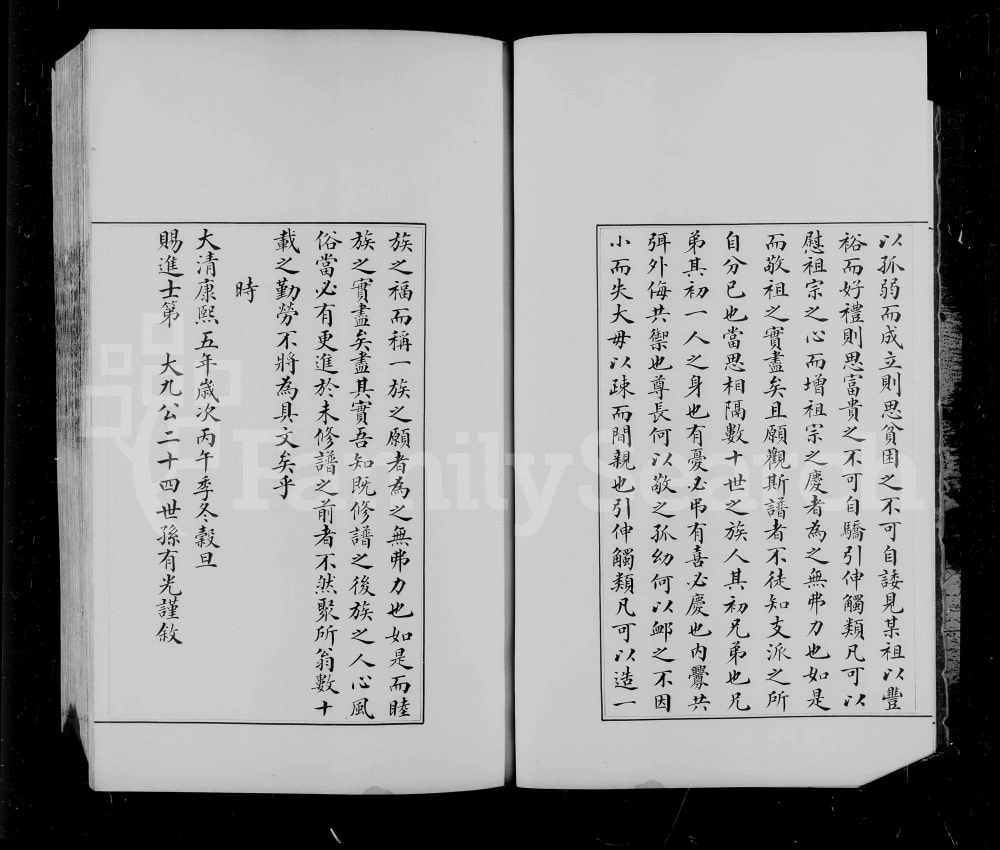 以孤弱而成立則思貧困之不可自諉見某祖以豐
裕而好禮則思富貴之不可自驕引伸觸類凡可以
慰祖宗之心而增祖宗之慶者為之無弗力也如是
而敬祖之實盡矣且願觀斯譜者不徒知支派之所
自分已也當思相隔數十世之族人其初兄弟也兄
弟其初一人之身也有憂必弔有喜必慶也內釁共
弭外侮共禦也尊長何以敬之孤幼何以卹之不因
小而失大毋以疎而間親也引伸觸類凡可以造一
族之福而稱一族之願者為之無弗力也如是而睦
族之實盡矣盡其實吾知既修譜之後族之人心風
俗當必有更進於未修譜之前者不然聚所翁數十
載之勤勞不將為具文矣乎
時
大清康熙五年歲次丙午季冬穀旦
賜進士第 大九公二十四世孫有光謹敘
FamilySearch